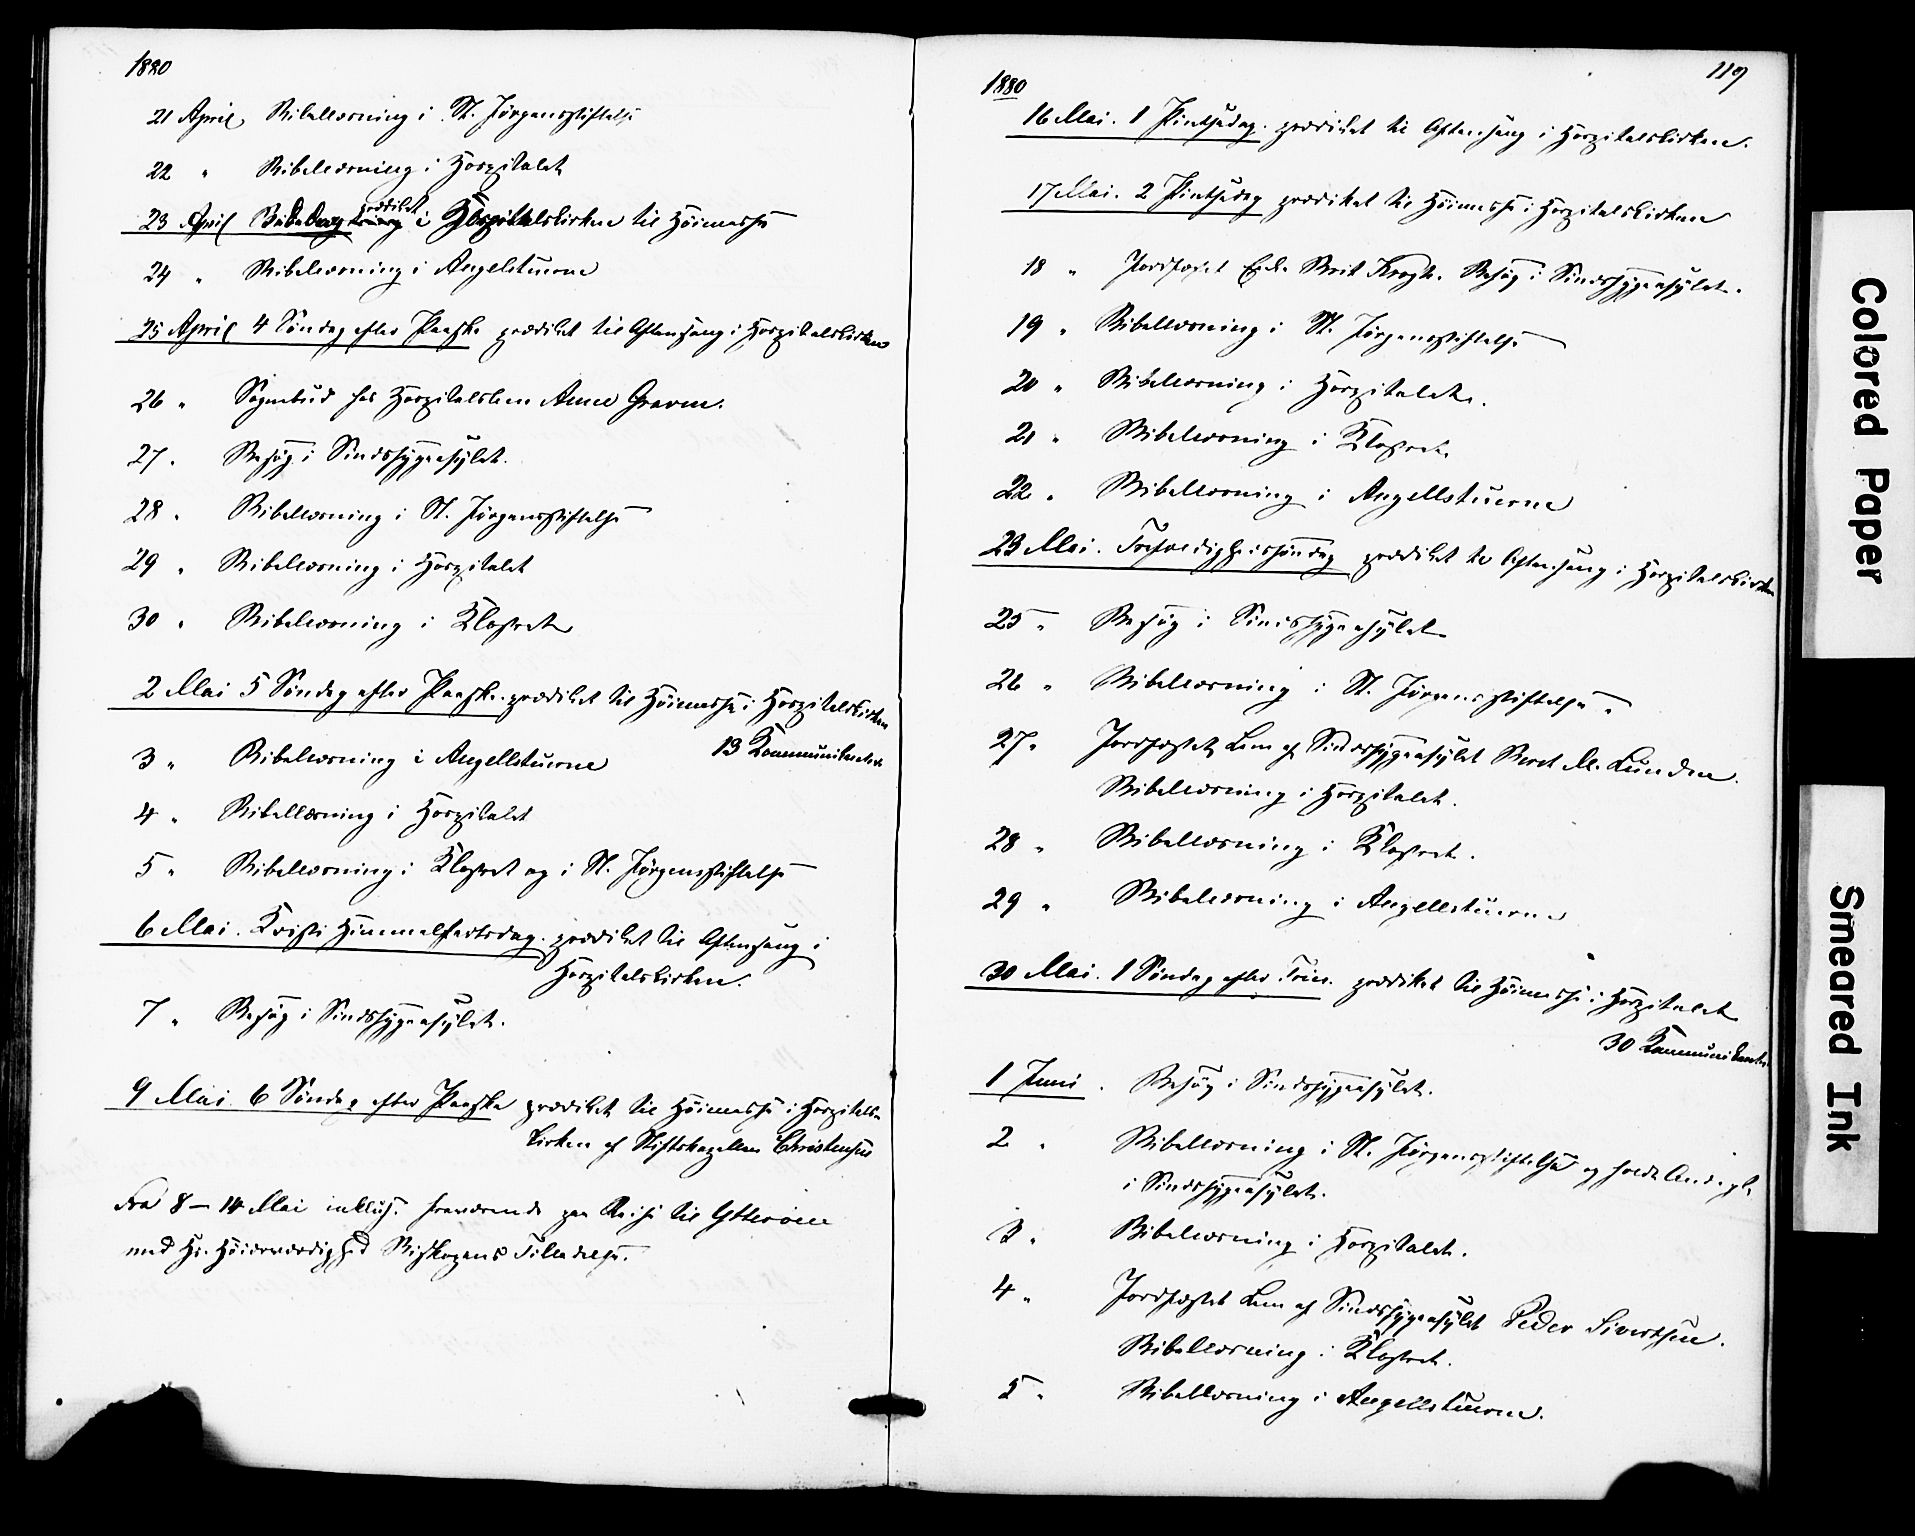 1880
21 April Bibellæsning i St. Jørgensstiftelse
22 " Bibellæsning i Hospitalet
23 April Bededag prædiket i Hospitalskirken til Høimesse
24 " Bibellæsning i Angelstuerne
25 April 4 Søndag efter Paaske prædiket til Aftensang i Hospitalskirken
26 " Sognebud hos Hospitalslem Anne Graven.
27 " Besøg i Sindssygeasylet.
28 " Bibellæsning i St. Jørgensstiftelse
29 " Bibellæsning i Hospitalet
30 " Bibellæsning i Klostret
2 Mai 5 Søndag efter Paaske. prædiket til Høimesse i Hospitalskirken
13 Kommunikanter
3 " Bibellæsning i Angellstuerne
4 " Bibellæsning i Hospitalet
5 " Bibellæsning i Klostret og i St. Jørgensstiftelse
6 Mai. Kristi Himmelfartsdag. prædiket til Aftensang i
Hospitalskirken.
7 " Besøg i Sindssygeasylet.
9 Mai 6 Søndag efter Paaske prædiket til Høimesse i Hospitals-
kirken af Stiftskapellan Christensen
Fra 8 – 14 Mai inklus. fraværende paa Reise til Ytterøen
med Hr. Høiærværdighed Biskopens Tilladelse.
1880
119
16 Mai. 1 Pintsedag. prædiket til Aftensang i Hospitalskirken.
17 Mai. 2 Pintsedag prædiket til Høimesse i Hospitalskirken
18 " Jordfæstet Enke Brit Krogh. Besøg i Sindssygeasylet.
19 " Bibellæsning i St. Jørgensstiftelse
20 " Bibellæsning i Hospitalet.
21 " Bibellæsning i Klostret.
22 " Bibellæsning i Angellstuerne
23 Mai. Trefoldighedssøndag prædiket til Aftensang i Hospitalskirken
25 " Besøg i Sindssygeasylet
26 " Bibellæsning i St. Jørgensstiftelse.
27 " Jordfæstet Lem af Sindssygeasylet Beret M. Lunden.
Bibellæsning i Hospitalet.
28 " Bibellæsning i Klostret.
29 " Bibellæsning i Angellstuerne
30 Mai. 1 Søndag efter Trin. prædiket til Høimesse i Hospitalet
30 Kommunikanter
1 Juni. Besøg i Sindssygeasylet.
2 " Bibellæsning i St. Jørgensstiftelse og holdt Andagt
i Sindssygeasylet.
3 " Bibellæsning i Hospitalet.
4 " Jordfæstet Lem af Sindssygeasylet Peder Sivertsen.
Bibellæsning i Klostret.
5 " Bibellæsning i Angellstuerne.
Colored Paper
Smeared Ink